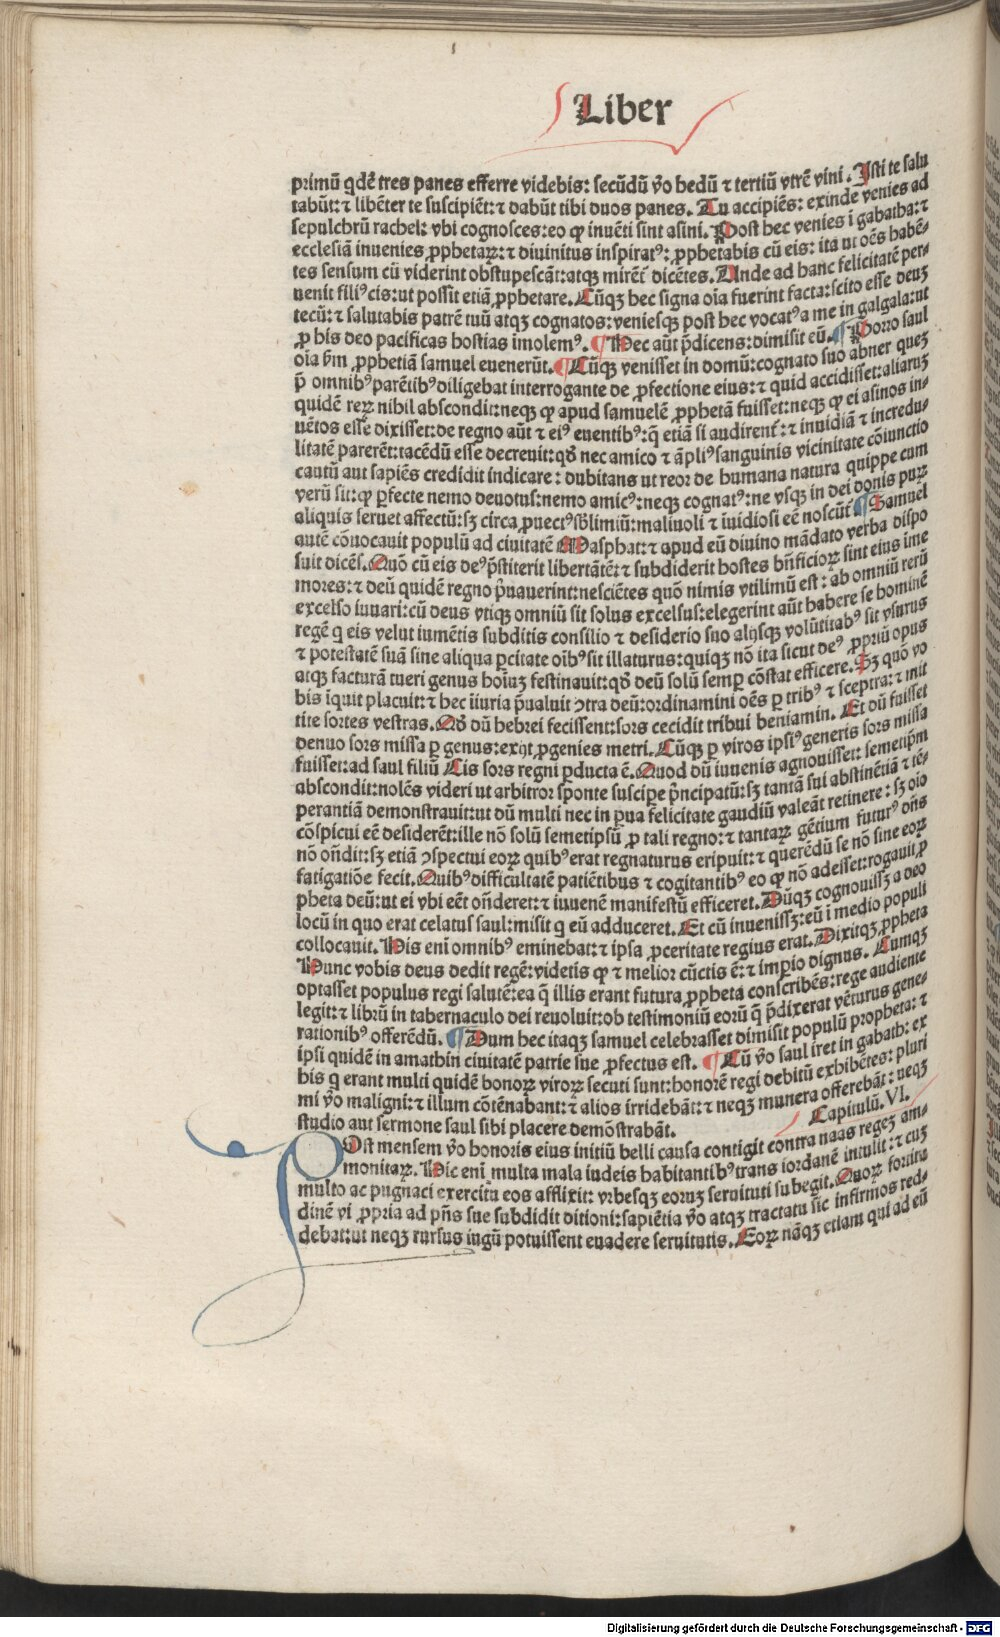 Liber
primũ qdẽ tres panes efferre videbis: secũdũ ṽo hedũ ⁊ tertiũ vtrẽ vini. Isti te salu
tabũt:⁊ libẽter te suscipiẽt:⁊ dabũt tibi duos panes. Tu accipiẽs: exinde venies ad
sepulchrũ rachel: vbi cognosces:eo ꝙ inuẽti sint asini. Post hec venies ĩ gabatha:⁊
ecclesiã inuenies ꝓphetaꝝ:⁊ diuinitus inspiratꝰ: ꝓphetabis cũ eis: ita ut oẽs habẽ-
tes sensum cũ viderint obstupescãt:atqꝫ mirẽt᷑ dicẽtes. Unde ad hanc felicitatẽ per-
uenit filiꝰ cis:ut possit etiã ꝓphetare. Cũqꝫ hec signa oĩa fuerint facta:scito esse deuꝫ
tecũ:⁊ salutabis patrẽ tuũ atqꝫ cognatos:veniesqꝫ post hec vocatꝰ a me in galgala:ut
ꝓ his deo pacificas hostias imolemꝰ. ¶ Hec aũt p̃dicens:dimisit eũ. ¶ Porro saul
oĩa ẽm ꝓphetiã samuel euenerũt. ¶ Cũqꝫ venisset in domũ:cognato suo abner queꝫ
p̃ omnibꝰ parẽtibꝰ diligebat interrogante de ꝓfectione eius:⁊ quid accidisset:aliaruꝫ
quidẽ reꝝ nihil abscondit:neqꝫ ꝙ apud samuelẽ ꝓphetã fuisset:neqꝫ ꝙ ei asinos in-
uẽtos esse dixisset:de regno aũt ⁊ eiꝰ euentibꝰ:q̃ etiã si audirent᷑:⁊ inuidiã ⁊ incredu-
litatẽ parerẽt:tacẽdũ esse decreuit:qđ nec amico ⁊ ãpliꝰ sanguinis vicinitate cõiuncto
cautũ aut sapiẽs credidit indicare: dubitans ut reor de humana natura quippe cum
verũ sit:ꝙ ꝑfecte nemo deuotus:nemo amicꝰ:neqꝫ cognatꝰ:ne vsqꝫ in dei donis puꝝ
aliquis seruet affectũ:sꝫ circa ꝓuectꝰ sb̃limiũ:maliuoli ⁊ ĩuidiosi eẽ noscũt᷑ ¶ Samuel
autẽ cõuocauit populũ ad ciuitatẽ Masphat:⁊ apud eũ diuino mãdato verba dispo
suit dicẽs. Quõ cũ eis deꝰ p̃stiterit libertãtẽ:⁊ subdiderit hostes bñficioꝝ sint eius ĩme
mores:⁊ deũ quidẽ regno p̃uauerint:nesciẽtes quõ nimis vtilimũ est: ab omniũ rerũ
excelso iuuari:cũ deus vtiqꝫ omniũ sit solus excelsus:elegerint aũt habere se hominẽ
regẽ q̃ eis velut iumẽtis subditis consilio ⁊ desiderio suo alijsqꝫ volũtitabꝰ sit vsurus
⁊ potestatẽ suã sine aliqua ꝑcitate oĩbꝰ sit illaturus:quiqꝫ nõ ita sicut deꝰ ꝓpriũ opus
atqꝫ facturã tueri genus hoĩuꝫ festinauit:qđ deũ solũ semꝑ cõstat efficere. Sꝫ quõ vo
bis ĩquit placuit:⁊ hec ĩiuria p̃ualuit ↄtra deũ:ordinamini oẽs ꝑ tribꝰ ⁊ sceptra:⁊ mit
tite sortes vestras. Qđ dũ hebrei fecissent:sors cecidit tribui beniamin. Et dũ fuisset
denuo sors missa ꝑ genus:exijt ꝓgenies metri. Cũqꝫ ꝑ viros ipsiꝰ generis sors missa
fuisset:ad saul filiũ Cis sors regni ꝑducta ẽ. Quod dũ iuuenis agnouisset: semetip̃m
abscondit:nolẽs videri ut arbitror sponte suscipe p̃ncipatũ:sꝫ tantã sui abstinẽtiã ⁊ tẽ-
perantiã demonstrauit:ut dũ multi nec in ꝑua felicitate gaudiũ valeãt retinere: sꝫ oĩo
cõspicui eẽ desiderẽt:ille nõ solũ semetipsũ ꝓ tali regno:⁊ tantaꝝ gẽtium futurꝰ dñs
nõ oñdit:sꝫ etiã ↄspectui eoꝝ quibꝰ erat regnaturus eripuit:⁊ querẽdũ se nõ sine eoꝝ
fatigatiõe fecit. Quibꝰ difficultatẽ patiẽtibus ⁊ cogitantibꝰ eo ꝙ nõ adesset:rogauit ꝓ
pheta deũ:ut ei vbi eẽt oñderet:⁊ iuuenẽ manifestũ efficeret. Dũqꝫ cognouissꝫ a deo
locũ in quo erat celatus saul:misit q̃ eũ adduceret. Et cũ inuenissꝫ:eũ ĩ medio populi
collocauit. His enĩ omnibꝰ eminebat:⁊ ipsa ꝓceritate regius erat. Dixitqꝫ ꝓpheta
Hunc vobis deus dedit regẽ:videtis ꝙ ⁊ melior cũctis ẽ:⁊ imꝑio dignus. Cumqꝫ
optasset populus regi salutẽ:ea q̃ illis erant futura ꝓpheta conscribẽs:rege audiente
legit:⁊ librũ in tabernaculo dei reuoluit:ob testimoniũ eorũ q̃ p̃dixerat vẽturus gene-
rationibꝰ offerẽdũ. ¶ Dum hec itaqꝫ samuel celebrasset dimisit populũ propheta:⁊
ipsi quidẽ in amathin ciuitatẽ patrie sue ꝓfectus est. ¶ Cũ ṽo saul iret in gabath: ex
his q̃ erant multi quidẽ bonoꝝ viroꝝ secuti sunt:honorẽ regi debitũ exhibẽtes: pluri
mi ṽo maligni:⁊ illum cõtẽnabant:⁊ alios irridebãt:⁊ neqꝫ munera offerebãt: neqꝫ
studio aut sermone saul sibi placere demõstrabãt.
Capitulũ. VI.
POst mensem ṽo honoris eius initiũ belli causa contigit contra naas regeꝫ am-
monitaꝝ. Hic enĩ multa mala iudeis habitantibꝰ trans iordanẽ intulit:⁊ cuꝫ
multo ac pugnaci exercitu eos afflixit: vrbesqꝫ eoruꝫ seruituti subegit. Quoꝝ fortitu
dinẽ vi ꝓpria ad pñs sue subdidit ditioni:sapiẽtia ṽo atqꝫ tractatu sic infirmos red-
debat:ut neqꝫ rursus iugũ potuissent euadere seruitutis. Eoꝝ nãqꝫ etiam qui ad eũ
Digitalisierung gefördert durch die Deutsche Forschungsgemeinschaft - DFG